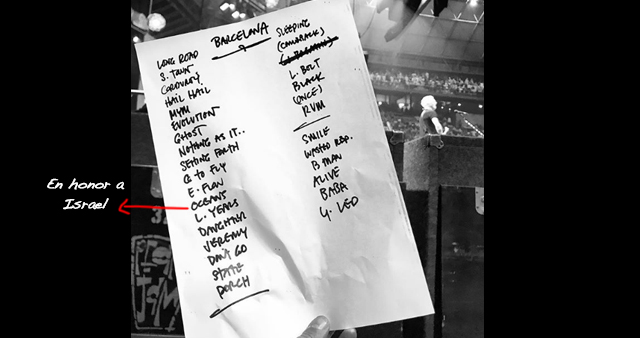 BARCELONA
LONG ROAD
S. TRUST
CORDUROY
HAIL HAIL
MYM
EVOLUTION
GHOST
NOTHING AS IT..
SETTING FORTH
G. TO FLY
E. FLOW
OCEANS
L. YEARS
DAUGHTER
JEREMY
DON'T GO
STATE
PORCH
SLEEPING
(COMEBACK)
L. BOLT
BLACK
(ONCE)
RVM
SMILE
WASTED REP.
B MAN
ALIVE
BABA
Y. LED
En honor a
Israel
PEARL
JAM